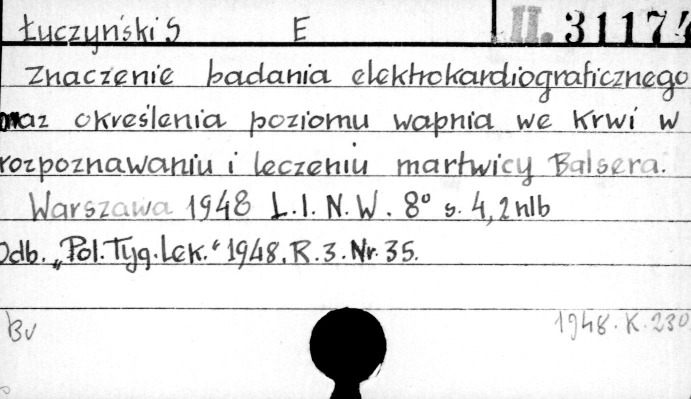 Łuczyński S E II. 31174
Znaczenie badania elektrokardiograficznego
oraz określenia poziomu wapnia we krwi w
rozpoznawaniu i leczeniu martwicy Balsera.
Warszawa 1948 L.I.N.W. 8° s. 4, 2 nlb
Odb. „Pol. Tyg. Lek.“ 1948. R. 3. Nr. 35.
Bv 1948. K. 230